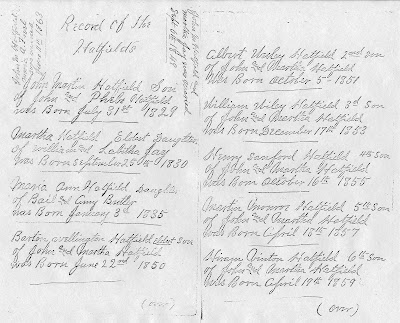 Record of the
Hatfields
John Martin Hatfield Son
of John and Hatfield
was Born July 31st 1829
Martha Hatfield Eldest Daughter
of William and Labitha Page
was Born September 25th 1830
Maria Ann Hatfield Daughter
of Bail and Amy Butler
was Born January 3rd 1835
Barton Wellington Hatfield eldest Son
of John and Martha Hatfield
was Born June 22nd 1850
(over)
Albert Wisley Hatfield 2nd Son
of John and Martha Hatfield
Was Born October 5th 1851
William Wiley Hatfield 3rd Son
of John and Martha Hatfield
was Born December 17th 1853
Henry Sanford Hatfield 4th Son
of John and Martha Hatfield
was Born October 16th 1855
Martin Monroe Hatfield 5th Son
of John and Martha Hatfield
was Born April 18th 1857
Hiram Vinton Hatfield 6th Son
of John and Martha Hatfield
Was Born April 19th 1859
(over)